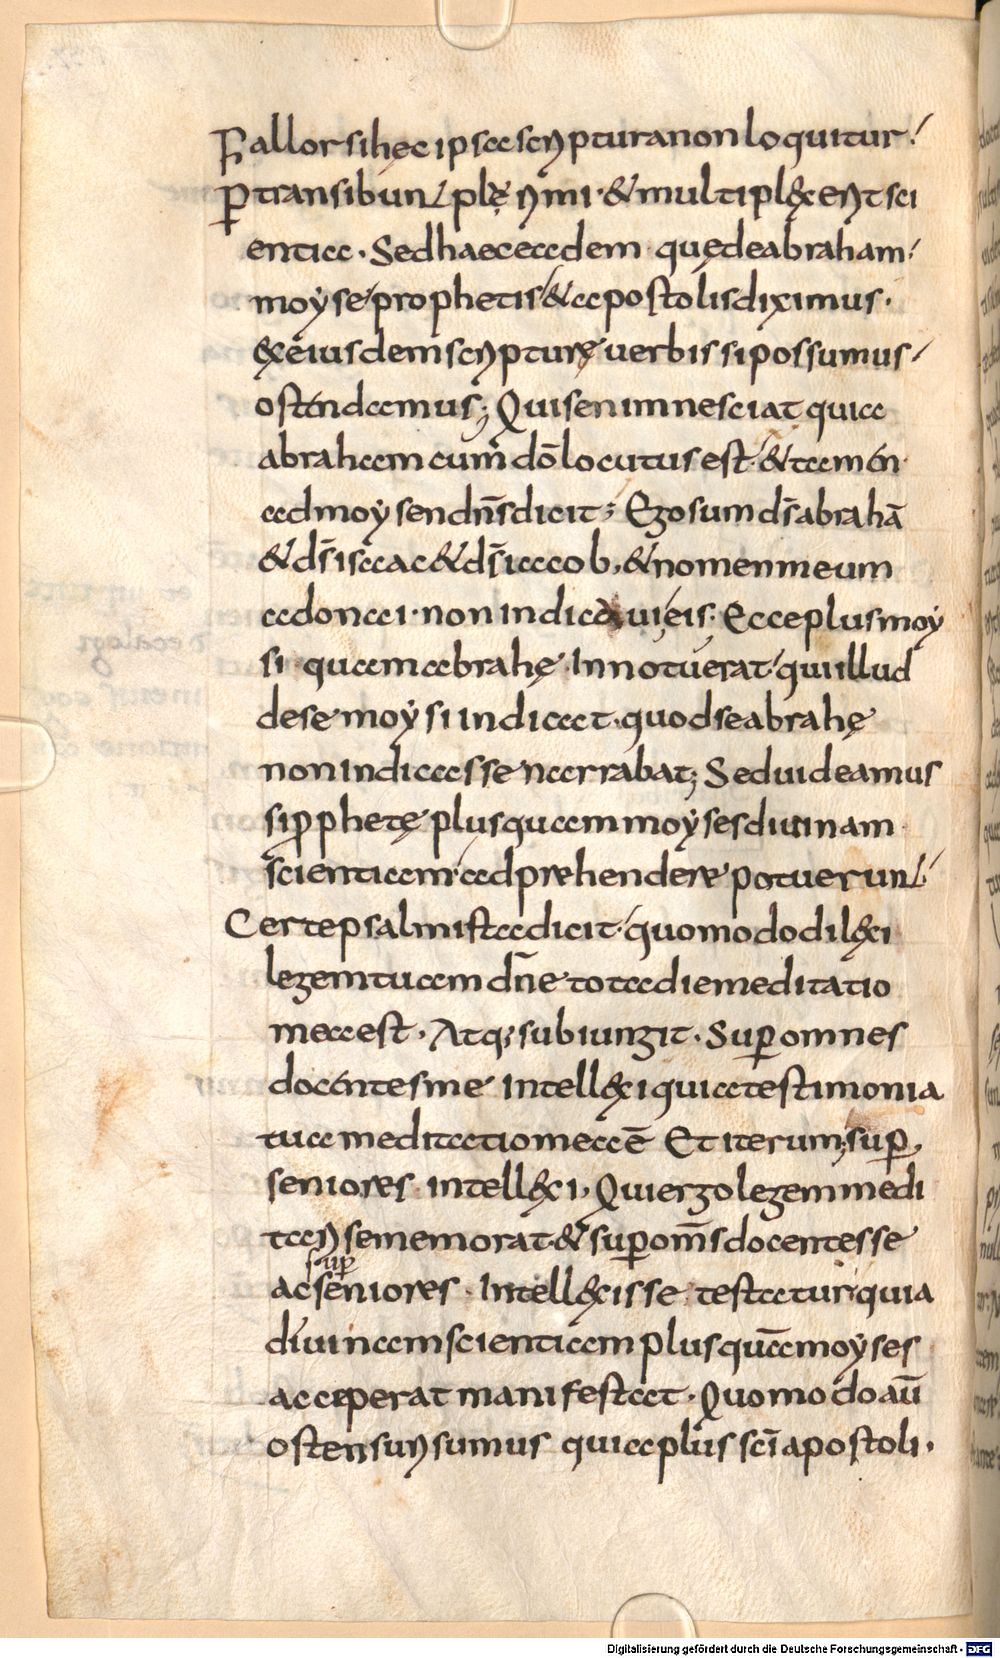 Fallor si hęc ipsa scriptura non loquitur.
Ꝑtransibunt plęrimi · & multiplex erit sci
entia · Sed haec eadem quę de abraham
moyse prophetis & apostolis diximus ·
& eiusdem scripturę uerbis si possumus
ostendamus; Quis enim nesciat quia
abraham cum dō locutus est · & tamen
ad moysen dn̄s dicit; Ego sum ds̄ abrahā
& ds̄ isaac & ds̄ iacob, & nomen meum
adonai · non indicaui eis · Ecce plus moy
si quam abrahę Innotuerat qui illud
de se moysi indicat · quod se abrahę
non indicasse narrabat; Sed uideamus
si ꝓphetę plus quam moyses diuinam
scientiam adprehendere potuerunt
Certe psalmista dicit quomodo dilexi
legem tuam dn̄e tota die meditatio
mea est · Atq; subiungit · Suꝑ omnes
docentes me intellexi quia testimonia
tua meditatio mea ē Et iterum; suꝑ
seniores intellexi, Qui ergo legem medi
tari se memorat & suꝑ om̄s docentes se
suꝑ
ac seniores · Intellexisse testatur quia
diuinam scientiam plus quā moyses
acceperat manifestat · Quomodo aū
ostensuri sumus quia plus sc̄i apostoli ·
Digitalisierung gefördert durch die Deutsche Forschungsgemeinschaft - DFG